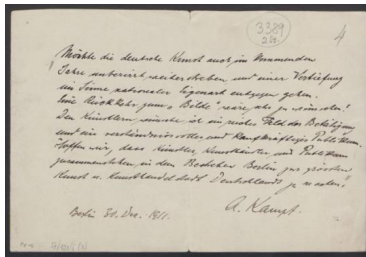 3389
4
Möchte die deutsche Kunst auch im kommenden
Jahre unbeirrt weiterstreben und einer Vertiefung
im Sinne nationaler Eigenart entgegen gehen.
Eine Rückkehr zum „Bilde" wäre, als zu wünschen!
Den Künstlern wünsche ich ein reiches Feld der Betätigung
und ein verständnisvolles und kaufkräftiges Publikum.
Hoffen wir, dass Künstler, Kunsthändler und Publikum
zusammenstehen, in dem Bestreben Berlin zur grössten
Kunst u. Kunsthandelsstadt Deutschlands zu machen!
Berlin 30. Dez. 1911.
A. Kampf.